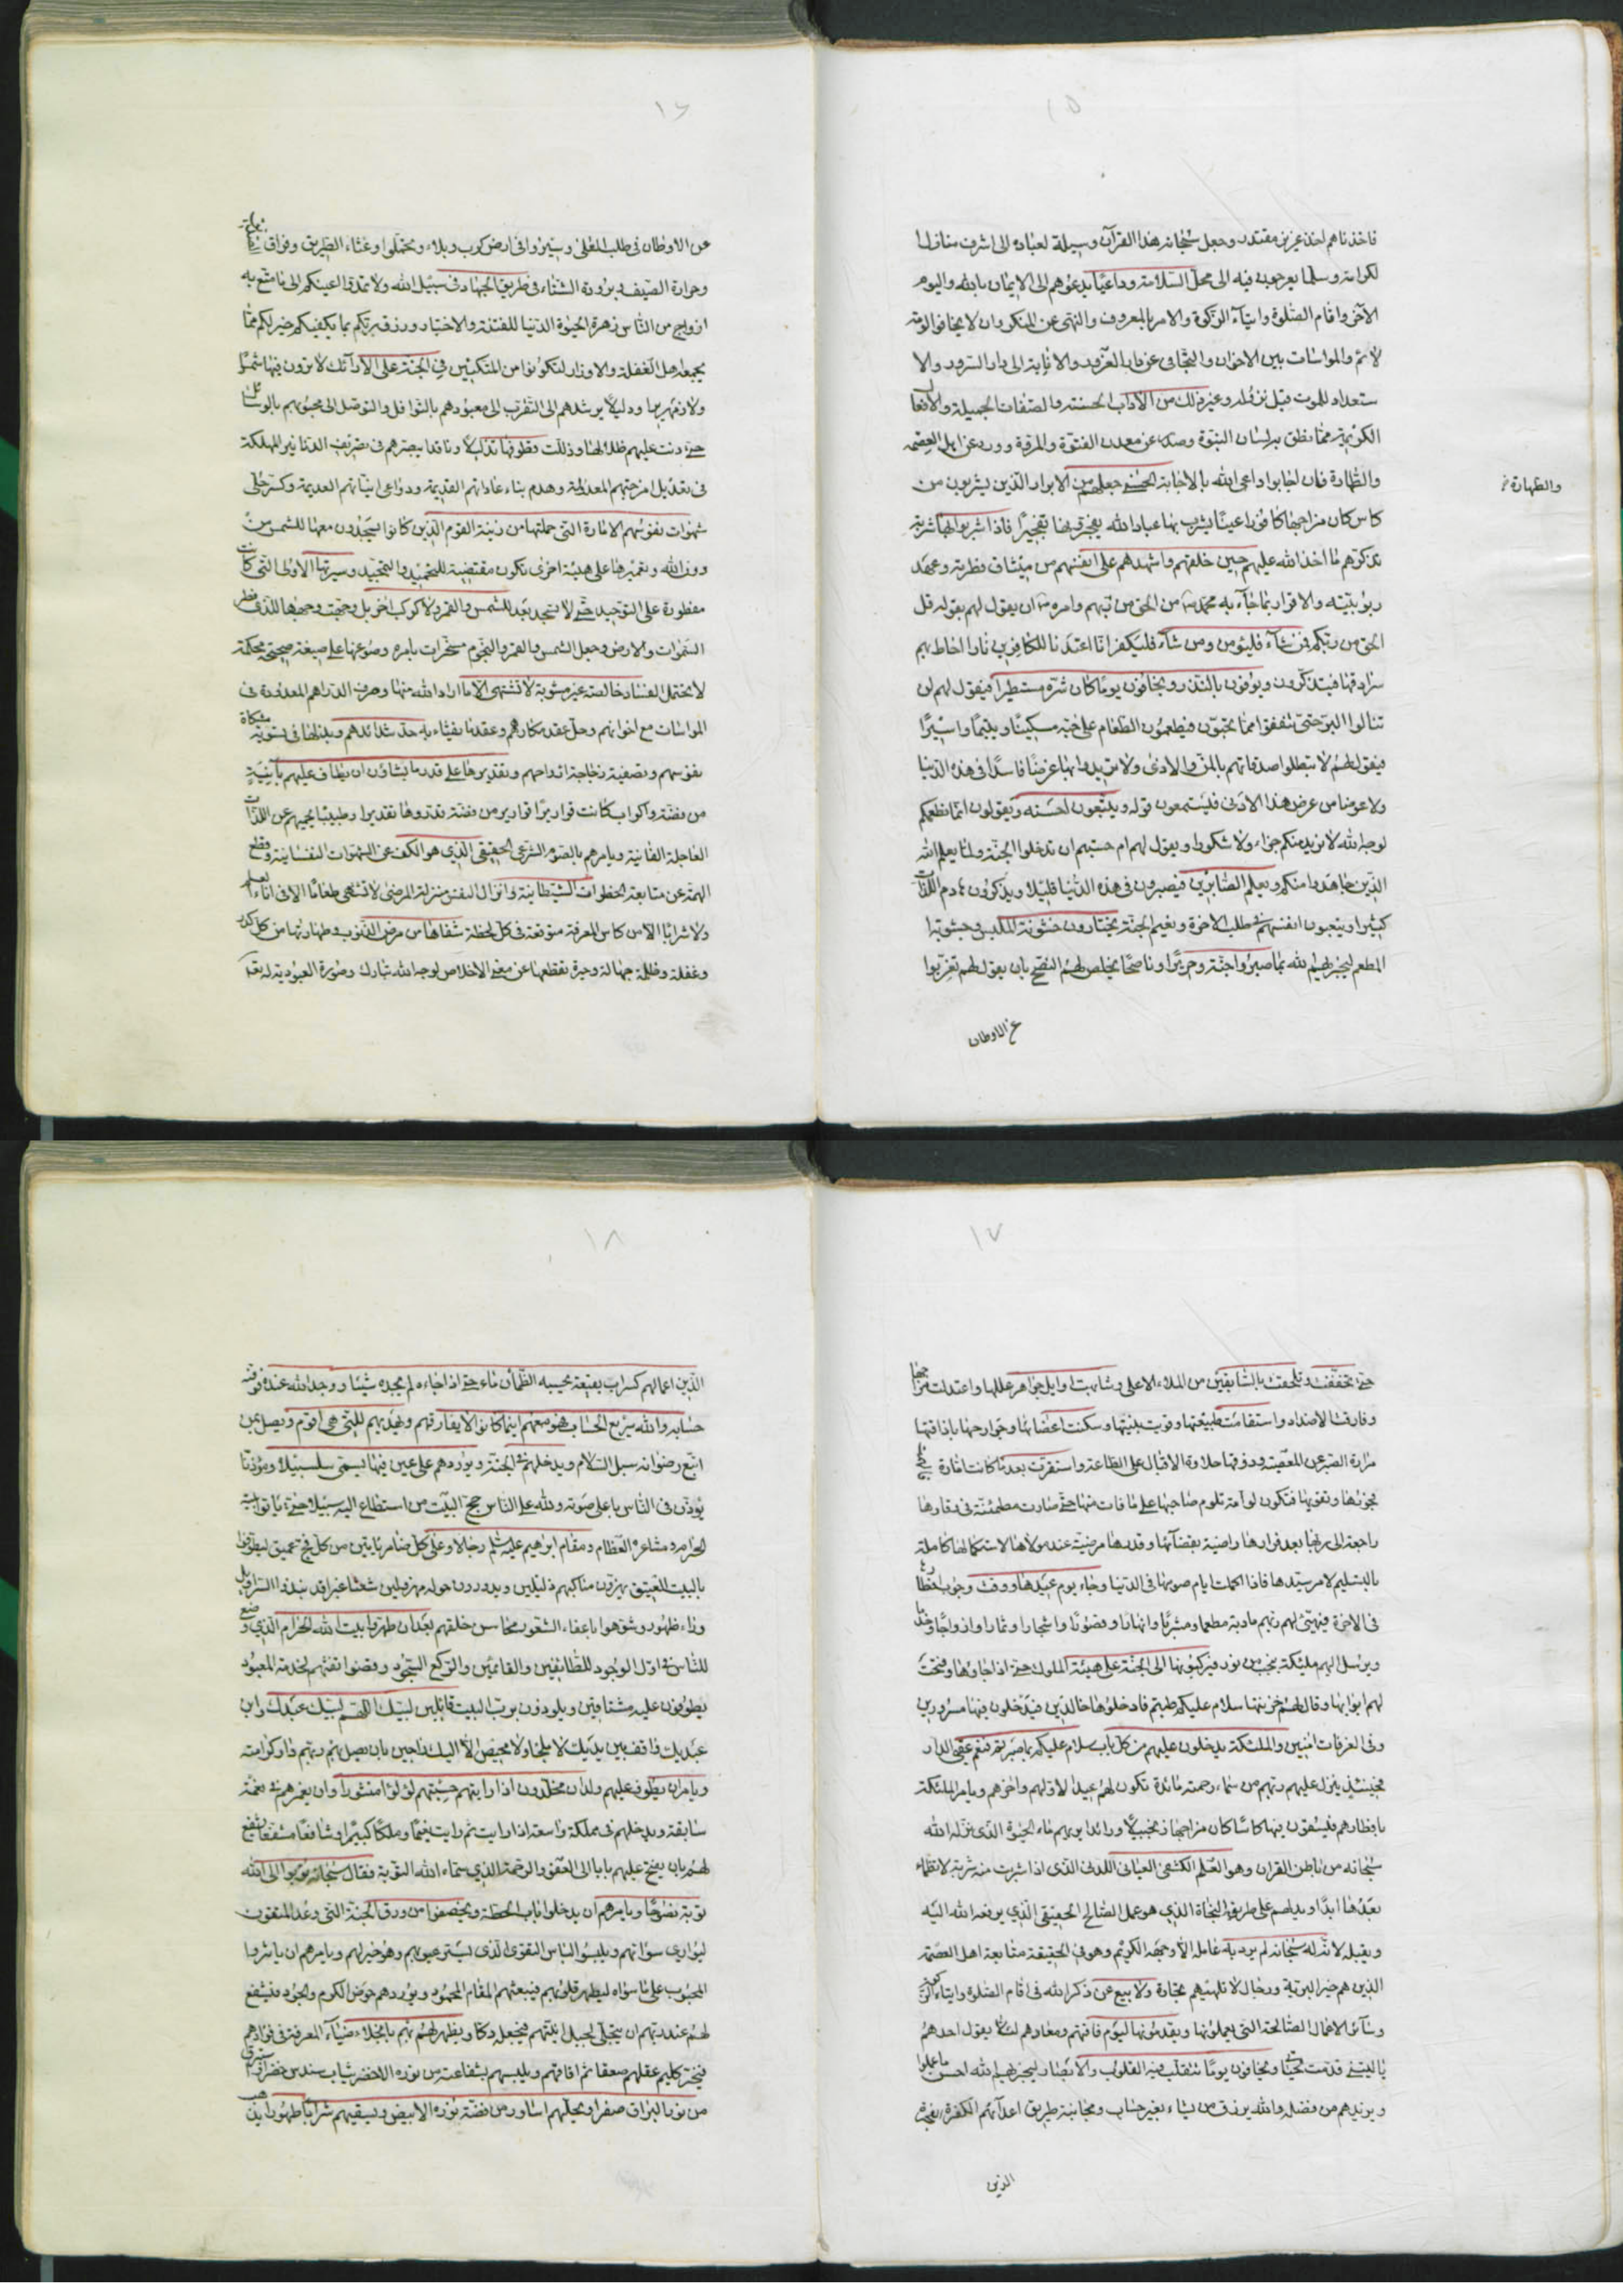 ١٥
فاخذناهم اخذ عزيز مقتدر وجعل سبحانه هذا القرآن وسيلة لعباده الى اشرف منازل
لكرامته وسلما يعرجون فيه الى محل السلامة وداعيا يدعوهم الى الايمان بالله واليوم
الآخر واقام الصلوة وايتاء الزكوة والامر بالمعروف والنهى عن المنكر وان لا يخافوا لومة
لائم والمواسات بين الاخوان والتجافى عن دار الغرور والانابة الى دار السرور والا
ستعداد للموت قبل نزوله وغير ذلك من الآداب الحسنة والصفات الجميلة والافعال
الكريمة مما نطق به لسان النبوة وصدر عن معدن الفتوة والمروة وورد عن اهل العصمة
والطهارة فان اجابوا داعى الله بالاجابة الحسنى جعلهم من الابرار الذين يشربون من
والطهارة
كاس كان مزاجها كافورا عينا يشرب بها عباد الله يفجرونها تفجيرا فاذا شربوا بها شربة
تذكرهم ما اخذ الله عليهم حين خلقهم واشهدهم على انفسهم من ميثاق فطرته وعهد
ربوبيته والاقرار بما جاء به محمد من الحق من ربهم وامره ان يقول لهم بقوله قل
الحق من ربكم فمن شاء فليؤمن ومن شاء فليكفر انا اعتدنا للكافرين نارا احاط بهم
سرادقها فيتذكرون ويوفون بالنذر ويخافون يوما كان شره مستطيرا فيقول لهم لن
تنالوا البر حتى تنفقوا مما تحبون فيطعمون الطعام على حبه مسكينا ويتيما واسيرا
فيقول لهم لا تبطلوا صدقاتكم بالمن والاذى ولا تريدوا بها عرضا فاسدا فى هذه الدنيا
ولا عوضا من عرض هذا الادنى فليستمعون قوله ويتبعون احسنه ويقولون انما نطعمكم
لوجه الله لا نريد منكم جزاء ولا شكورا ويقول لهم ام حسبتم ان تدخلوا الجنة ولما يعلم الله
الذين جاهدوا منكم ويعلم الصابرين فيصبرون فى هذه الدنيا قليلا ويذكرون هادم اللذات
كثيرا ويتعبون انفسهم فى طلب الاخرة ونعيم الجنة يختارون خشونة الملبس وجشوبة
المطعم ليجزيهم الله بما صبروا جنة وحريرا وناصحا يخلص لهم النصح بان يقول لهم تغربوا
عن الاوطان
١٦
عن الاوطان فى طلب المعلى وسيروا فى ارض كرب وبلاء وتحملوا وعثاء الطريق وفراق
وحرارة الصيف وبرودة الشتاء فى طريق الجهاد فى سبيل الله ولا تمدوا اعينكم الى ما متع به
ازواج من الناس زهرة الحيوة الدنيا للفتنة والاختبار ورزق ربكم بما يكفيكم خير لكم مما
يجمعه اهل الغفلة والاوزار لتكونوا من المتكئين فى الجنة على الارائك لا ترون فيها شمسا
ولا زمهريرا ودليلا يرشدهم الى التقرب الى معبودهم بالنوافل والتوصل الى محبوبهم بالوسائل
حتى دنت عليهم ظلالها وذللت قطوفها تذليلا وناقدا يبصرهم فى تصريف الدنانير المهلكة
فى تعديل امزجتهم المعدلة وهدم بناء عاداتهم القديمة ودواعى انياتهم العديمة وكسر حلى
شهوات نفوسهم الامارة التى حملتها من زينة القوم الذين كانوا يسجدون معها للشمس من
دون الله وتغييرها على هيئة اخرى تكون مقتضية للتحميد والتمجيد وسيرتها الاولى التى كانت
مفطورة على التوحيد حتى لا تسجد بعد للشمس والقمر ولا كوكب اخر بل وجهت وجهها للذى فطر
السموات والارض وجعل الشمس والقمر والنجوم مسخرات بامره وصوغها على صيغة صحيحة محكمة
لا يحتمل الفساد خالصة غير مشوبة لا تشتهى الا ما اراد الله منها وصرف الدراهم المعدودة فى
المواسات مع اخوانهم وحل عقد مكارهم وعقد ما يفثاء به حد شدائدهم وبذلها فى تسوية مشكاة
نفوسهم وتصفية زجاجة ارواحهم وتقديرها على قدر ما يشاؤن ان يطاف عليهم بآنية
من فضة واكواب كانت قواريرا قوارير من فضة قدروها تقديرا وطبيبا يحميهم عن اللذات
العاجلة الفانية ويامرهم بالصوم الشرعى الحقيقى الذى هو الكف عن الشهوات النفسانية وقطع
الهمة عن متابعة الخطوات الشيطانية وانزال النفس منزلة المرضى لا تشتهى طعاما الا فى اناء العلم
ولا شرابا الا من كاس المعرفة متوقعة فى كل لحظة شفاها من مرض الذنوب وطهارتها من كل كدر
وغفلة وظلمة جهالة وحيرة تقطعها عن معنى الاخلاص لوجه الله تبارك وصورة العبودية له تعالى
١٧
حتى تخففت وتلحقت بالسابقين من الملاء الاعلى وشابهت اوايل جواهر عللها واعتدلت مزاجها
وفارقت الاضداد واستقامت طبيعتها وقويت بنيتها وسكنت اعضائها وجوارحها باذاقتها
مرارة الصبر عن المعصية وذوقها حلاوة الاقبال على الطاعة واستقرت بعد ما كانت امارة فى
فجورها وتقويها فتكون لوامة تلوم صاحبها على ما فات منها حتى صارت مطمئنة فى مقارها
راجعة الى ربها بعد فرارها راضية بقضائها وقدرها مرضية عند مولاها لاستكمالها كاملة
بالتسليم لامر سيدها فاذا اكملت ايام صومها فى الدنيا وجاء يوم عيدها ووقت وجوب افطارها
فى الاخرة فيهيئ لهم ربهم مادبة مطعما ومشربا وانهارا وقصورا واشجارا وثمارا وازواجا وخدما
ويرسل اليهم ملئكة بنجب من نور فيركبونها الى الجنة على هيئة الملوك حتى اذا جاؤها وفتحت
لهم ابوابها وقال لهم خزنتها سلام عليكم طبتم فادخلوها خالدين فيدخلون فيها مسرورين
وفى الغرفات امنين والملئكة يدخلون عليهم من كل باب سلام عليكم بما صبرتم فنعم عقبى الدار
فحينئذ ينزل عليهم ربهم من سماء رحمته مائدة تكون لهم عيدا لاولهم واخرهم ويامر الملئكة
بافطارهم فليسقون فيها كاسا كان مزاجها زنجبيلا ورائدا يريهم ماء الحيوة الذى نزله الله
سبحانه من باطن القران وهو العلم الكشفى العيانى اللدنى الذى اذا شربت منه شربة لا تظماء
بعدها ابدا ويدلهم على طريق النجاة الذى هو عمل الصالح الحقيقى الذى يرفعه الله اليه
ويقبله لانه له سبحانه لم يرد به عامله الا وجهه الكريم وهو فى الحقيقة متابعة اهل العصمة
الذين هم خير البرية ورجال لا تلهيهم تجارة ولا بيع عن ذكر الله فى اقام الصلوة وايتاء الزكوة
وسائر الاعمال الصالحة التى يعملونها ويقدمونها ليوم فاقتهم ومعادهم لئلا يقول احدهم
يا ليتنى قدمت لحيوتى ويخافون يوما تتقلب فيه القلوب والابصار ليجزيهم الله احسن ما عملوا
ويزيدهم من فضله والله يرزق من يشاء بغير حساب ومجانبة طريق اعدائهم الكفرة الفجرة
الذين
١٨
الذين اعمالهم كسراب بقيعة يحسبه الظمآن ماء حتى اذا جاءه لم يجده شيئا ووجد الله عنده فوفيه
حسابه والله سريع الحساب فهو معهم اينما كانوا لا يفارقهم ويهديهم للتى هى اقوم ويصل بمن
اتبع رضوانه سبل السلام ويدخلهم فى الجنة ويوردهم على عين فيها تسمى سلسبيلا ومؤذنا
يؤذن فى الناس باعلى صوته ولله على الناس حج البيت من استطاع اليه سبيلا حتى ياتوا بيته
الحرام ومشاعره العظام ومقام ابراهيم عليه سلم رجالا وعلى كل ضامر ياتين من كل فج عميق ليطوفوا
بالبيت العتيق يهزون مناكبهم ذليلين ويدورون حوله مهرولين شعثا غبرا قد نبذوا السرابيل
وراء ظهور وشوهوا باعفاء الشعور محاسن خلقهم بعد ان طهروا بيت الله الحرام الذى وضع
للناس فى اول الوجود للطائفين والقائمين والركع السجود وقضوا تفثهم لخدمة المعبود
يطوفون عليه مشتاقين ويلوذون برب البيت قائلين لبيك اللهم لبيك عبدك وابن
عبديك واقف بين يديك لا ملجا ولا محيص الا اليك راجين بان يصل بهم ربهم دار كرامته
ويامر ان يطوف عليهم ولدان مخلدون اذا رايتهم حسبتهم لؤلؤا منثورا وان يغمرهم فى نعمة
سابقة ويدخلهم فى مملكة واسعة اذا رايت ثم رايت نعيما وملكا كبيرا وشافعا مشفعا يشفع
لهم بان يفتح عليهم بابا الى العفو والرحمة الذى سماه الله التوبة فقال سبحانه توبوا الى الله
توبة نصوحا ويامرهم ان يدخلوا باب الحطة ويخصفوا من ورق الجنة التى وعد المتقون
ليوارى سوآتهم ويلبسوا لباس التقوى الذى يستر عيوبهم وهو خير لهم ويامرهم ان يأثروا
المحبوب على ما سواه ليطهر قلوبهم فيبعثهم المقام المحمود ويوردهم حوض الكرم والجود فليشفع
لهم عند ربهم ان يتجلى لجبل انيتهم فيجعله دكا ويظهر لهم ربهم بانجلاء ضياء المعرفة فى فؤادهم
فيخر كليم عقلهم صعقا ثم افاقهم ويلبسهم بشفاعته من نوره الاخضر ثياب سندس خضر واستبرق
من نور البراق صفرا ويحليهم اساور من فضة نوره الابيض ويسقيهم شرابا طهورا